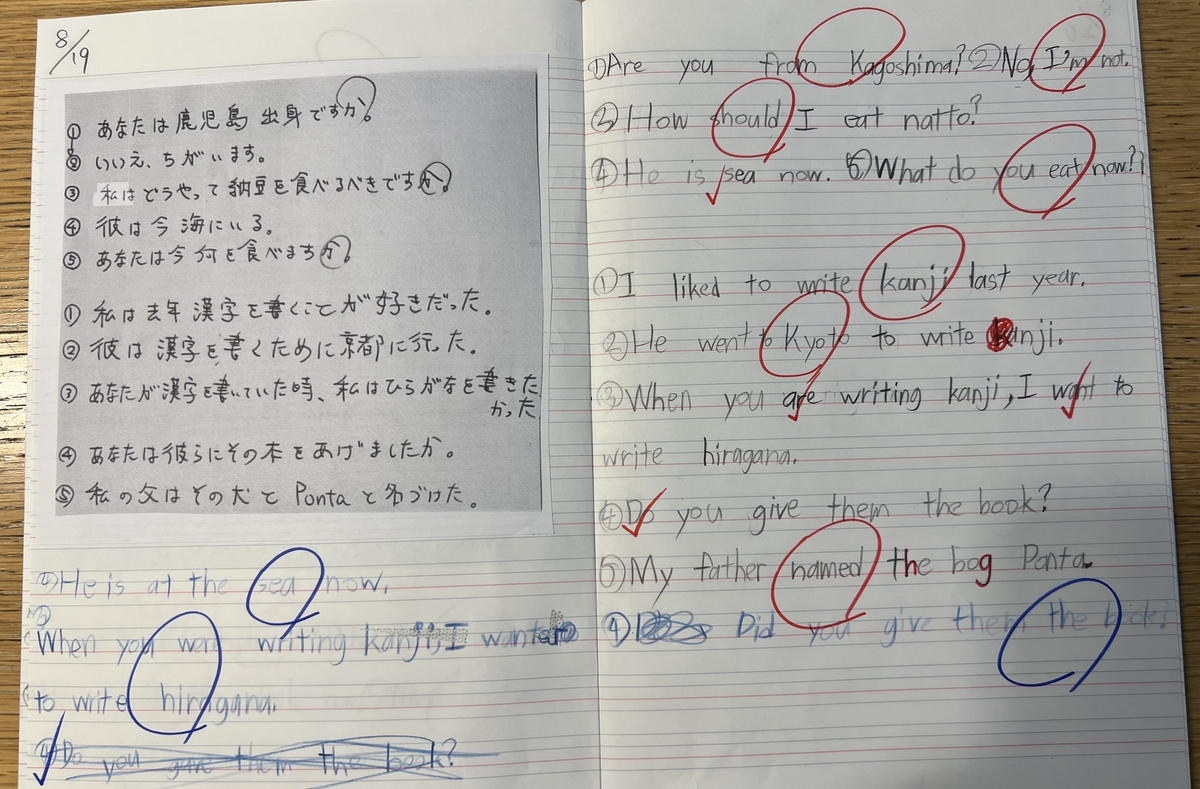 8/19
① あなたは鹿児島出身ですか?
② いいえ、ちがいます。
③ 私はどうやって納豆を食べるべきですか?
④ 彼は今海にいる。
⑤ あなたは今何を食べますか?
① 私は去年漢字を書くことが好きだった。
② 彼は漢字を書くために京都に行った。
③ あなたが漢字を書いていた時、私はひらがなを書きた
かった
④ あなたは彼らにその本をあげましたか。
⑤ 私の父はその犬とPontaと名づけた。
④He is at the sea now.
③
When you were writing kanji, I wanted
to write hiragana.
④Do you gave them the book?
①Are you from Kagoshima? ②No, I'm not.
③How should I eat natto?
④He is sea now. ⑤What do you eat now?
①I liked to write kanji last year.
②He went to Kyoto to write kanji.
③When you are writing kanji, I want to
write hiragana.
④Do you give them the book?
⑤My father named the bog Ponta.
④ Did you give them the book?